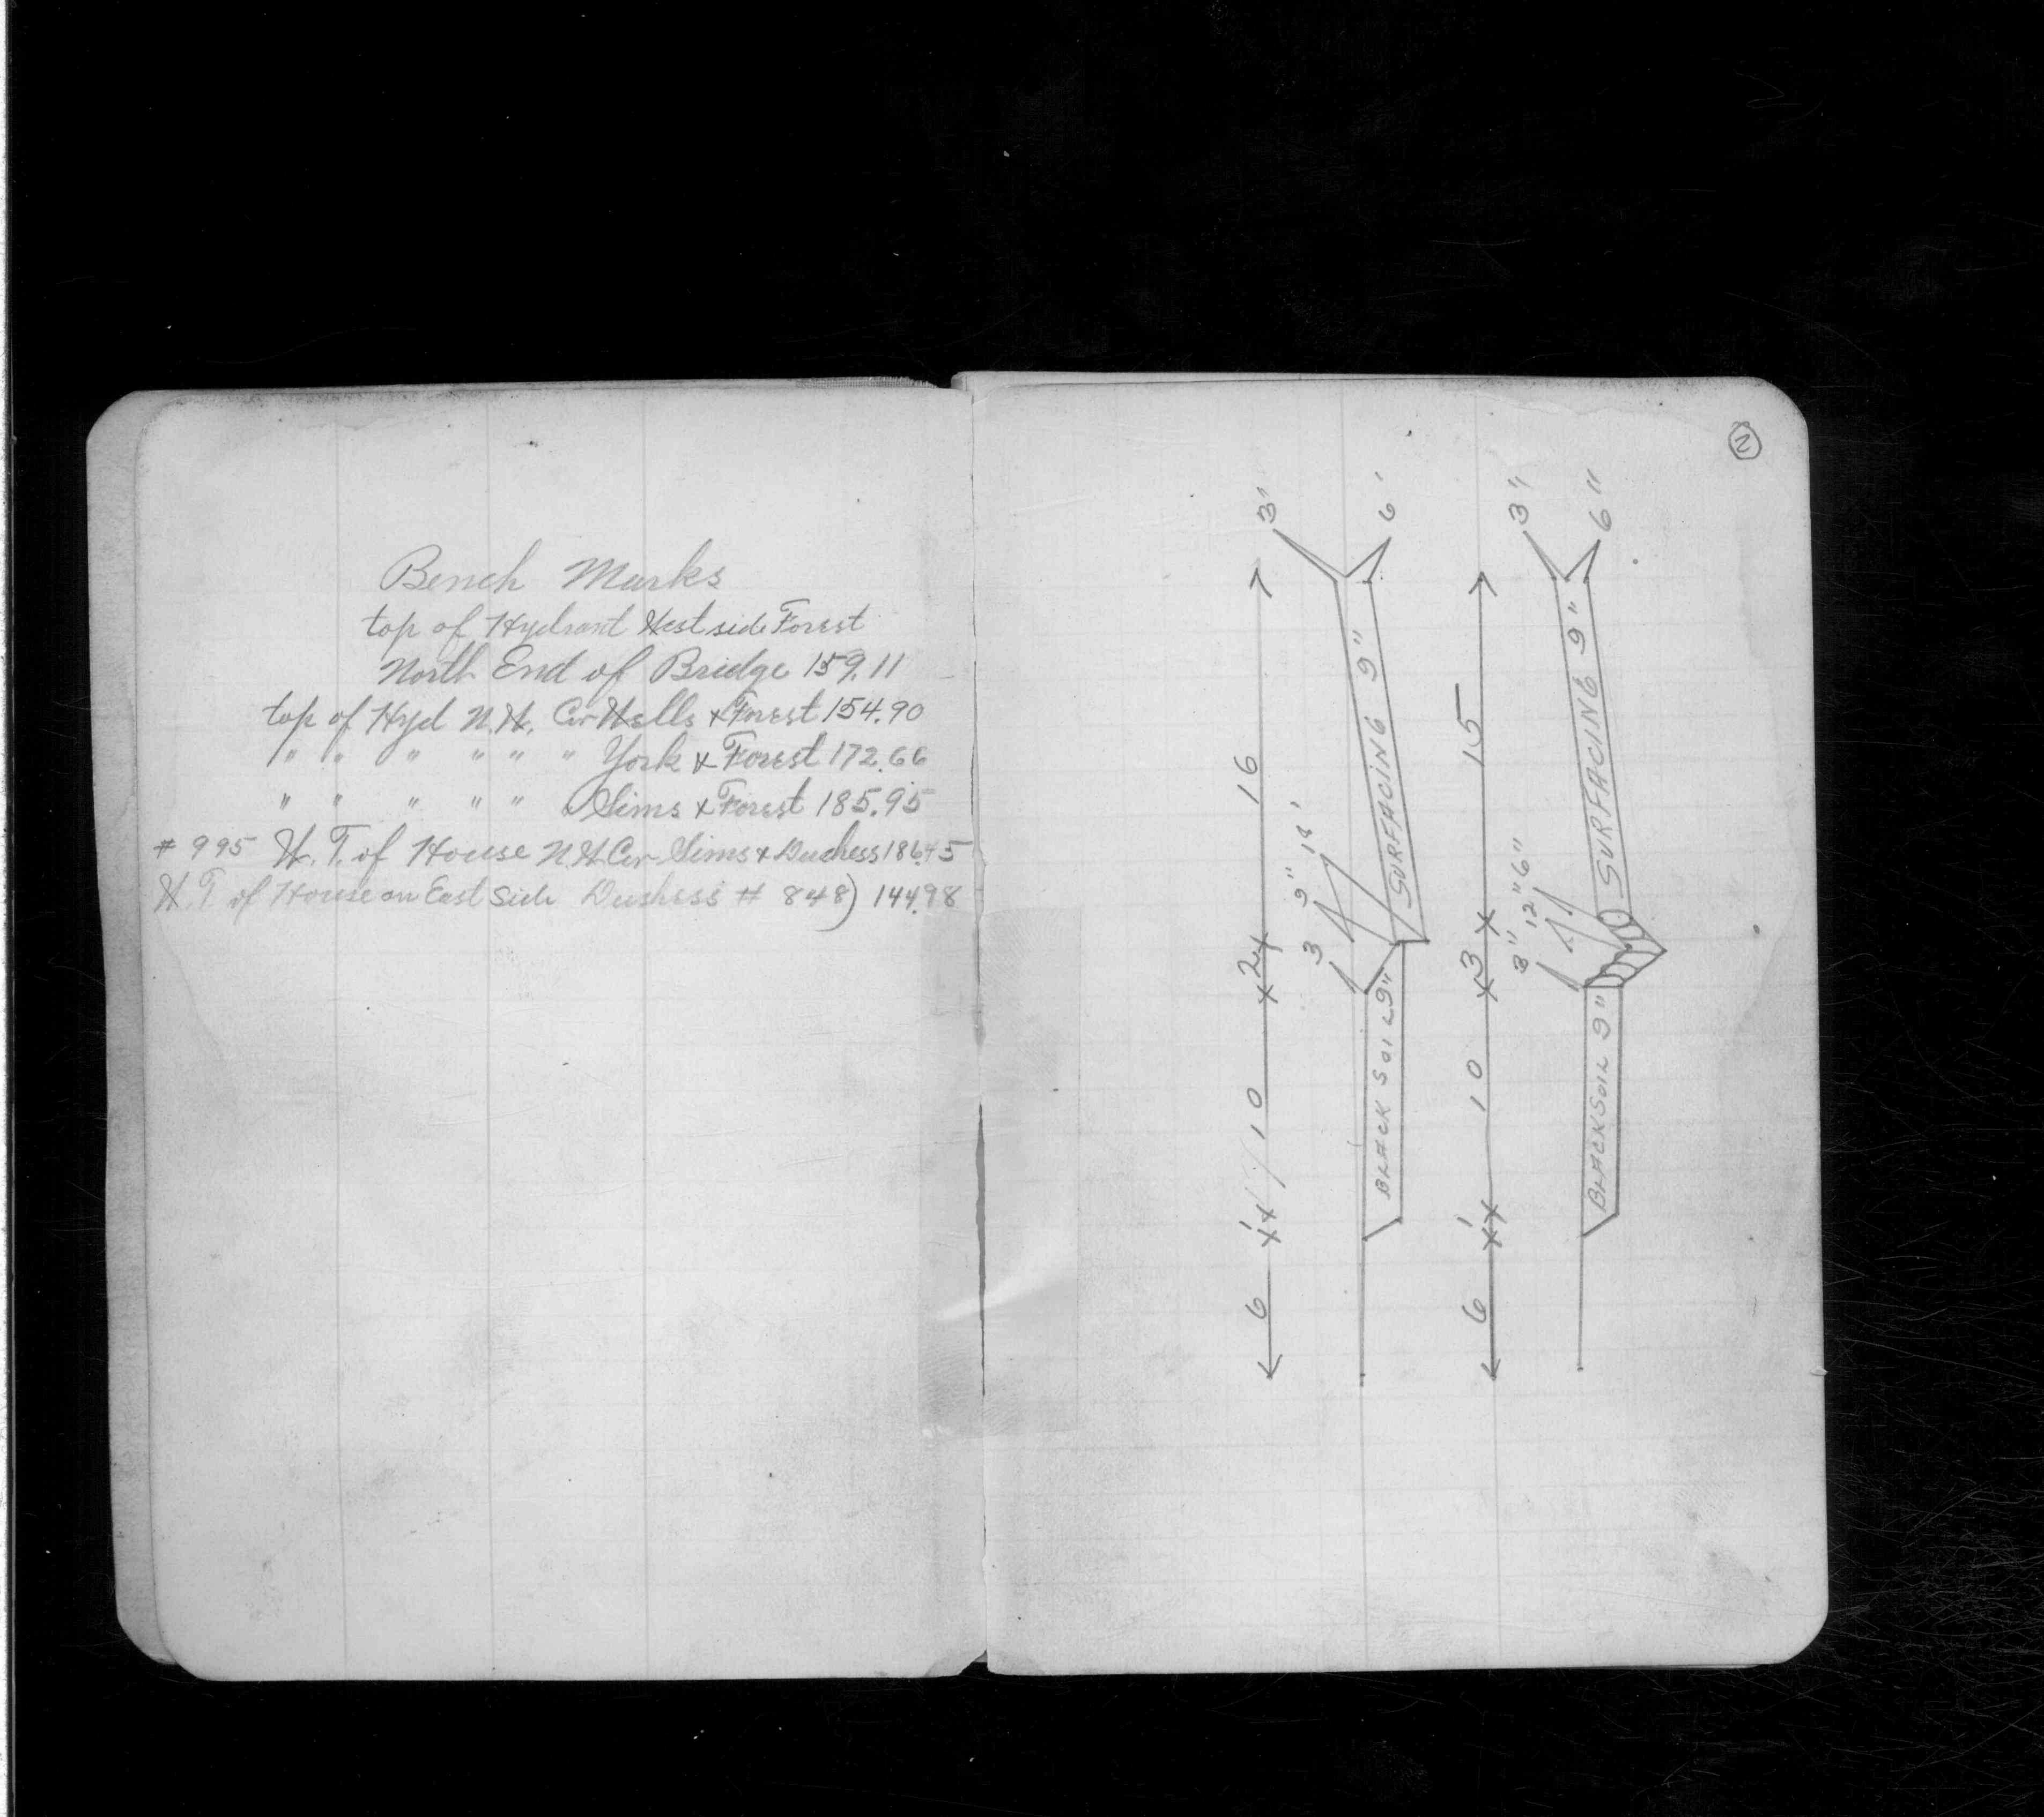 Bench Marks
top of Hydrant West side Forest
North End of Bridge 159.11
top of Hyd N.W. Cor Wells & Forest 154.90
" " " " " " York & Forest 172.66
" " " " " " Sims & Forest 185.95
# 995 W.T. of House N.W Cor Sims & Duchess 186.45
W.T. of House on East Side Duchess # 848) 144.98
2
6 1' 10 2 16
3 9" 18'
3' 6'
BLACK SOIL 9"
SURFACING 9"
6 1' 10 3 15
3" 12" 6"
3' 6"
BLACK SOIL 9"
SURFACING 9"